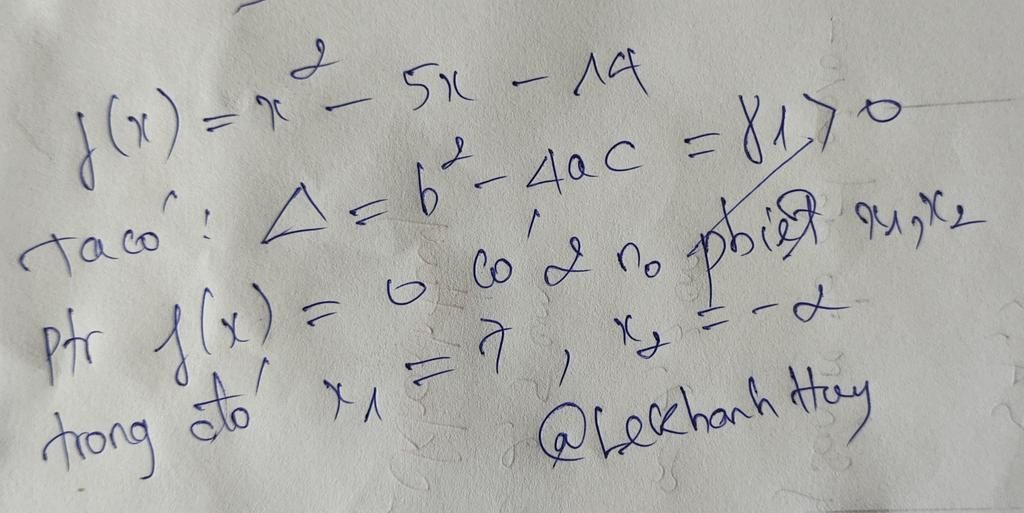 f(x) = x² - 5x - 14
Ta có: Δ = b² - 4ac = 81 > 0
ptr f(x) = 0 có 2 no pbiệt x₁, x₂
trong đó x₁ = 7, x₂ = -2
@LeKhanhHuy